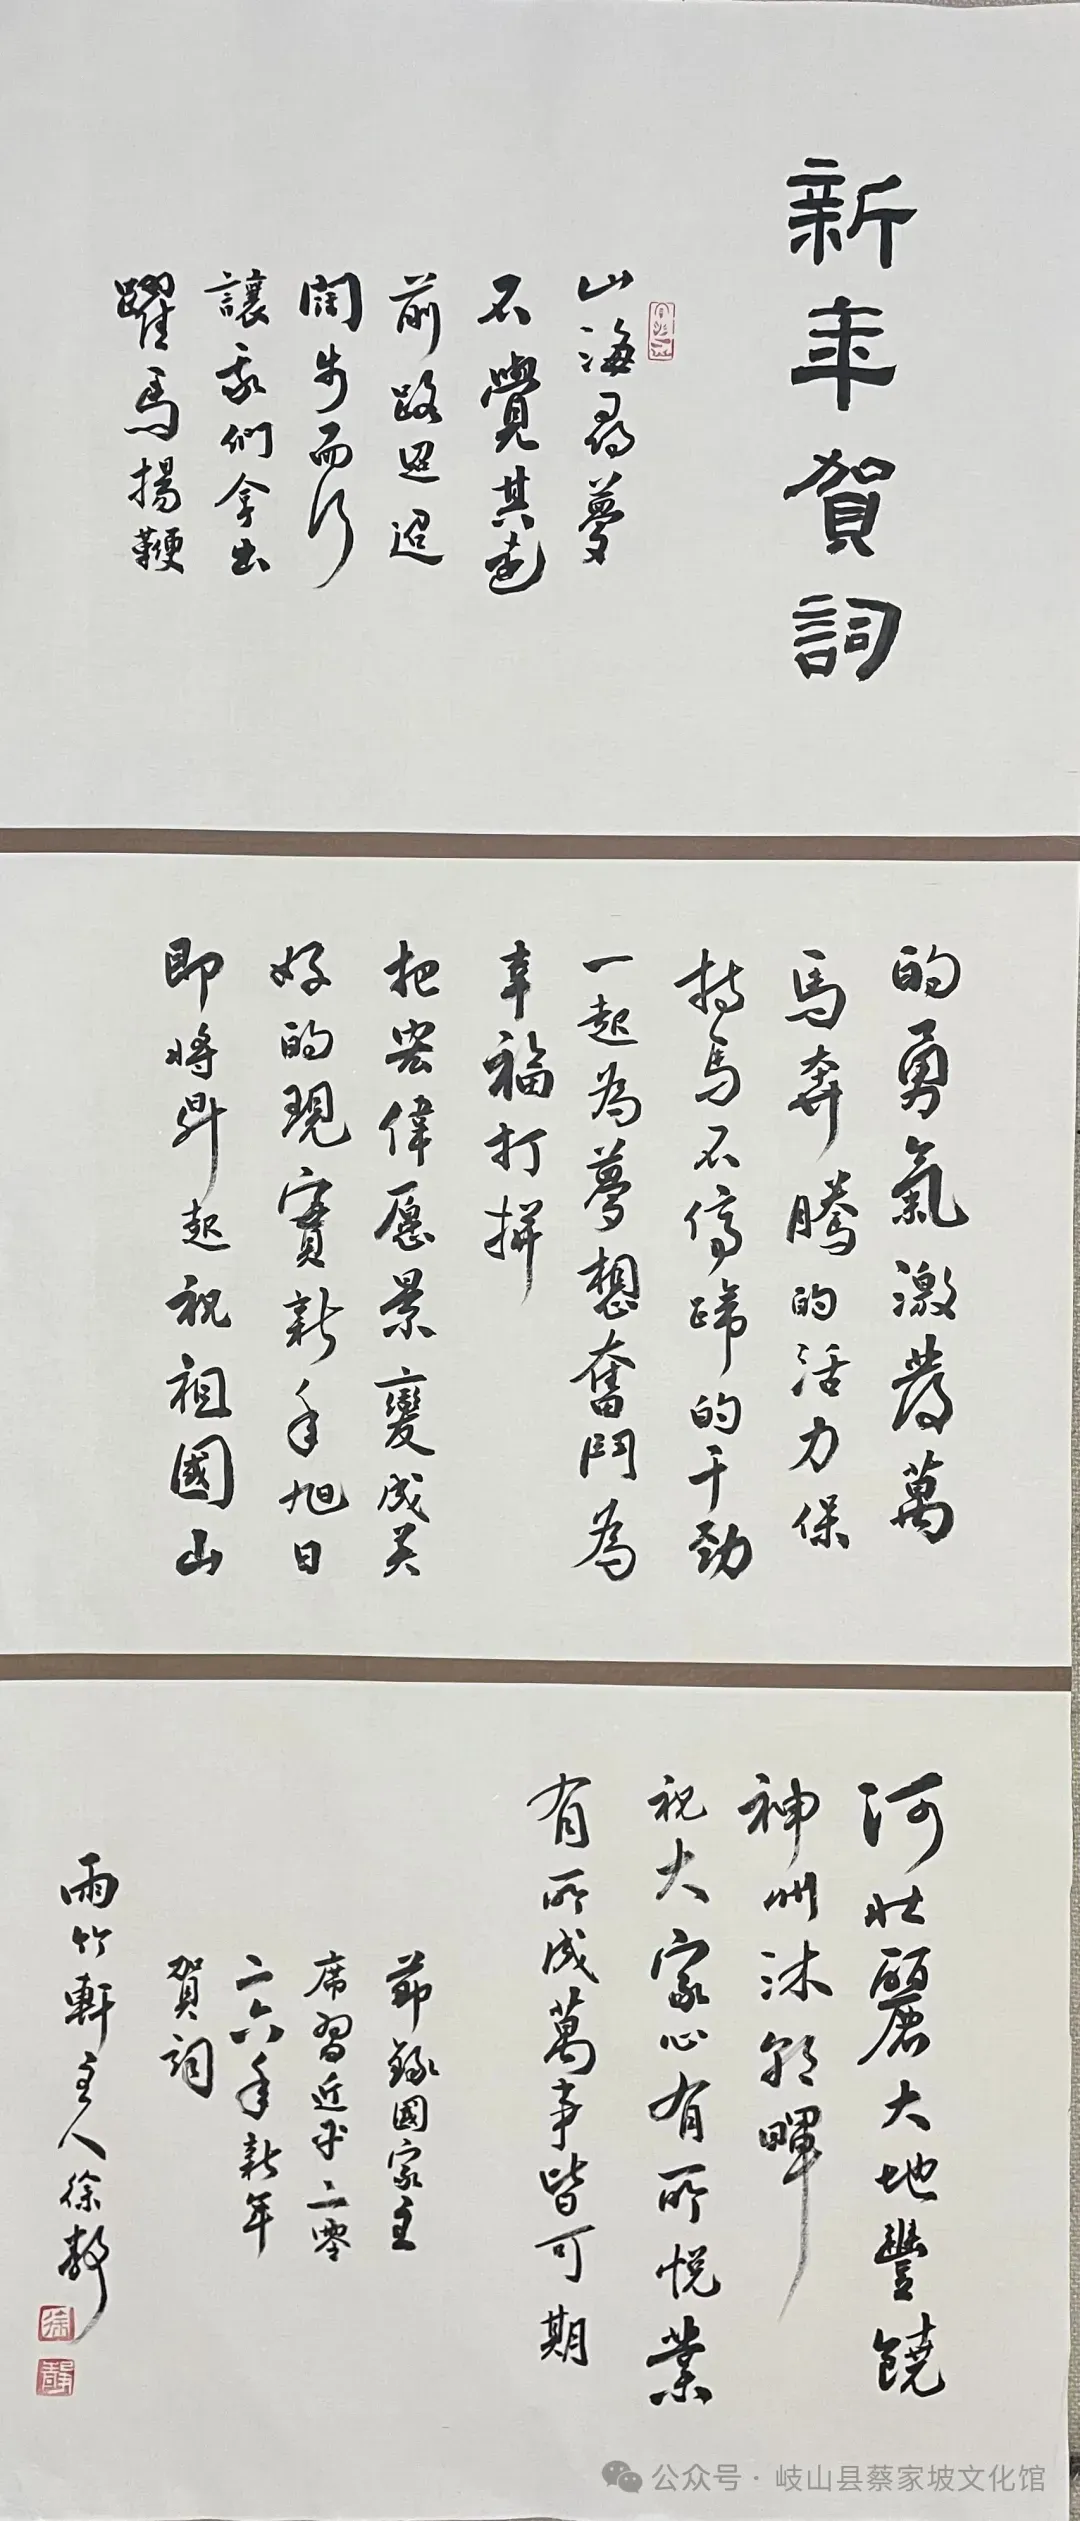 新年賀詞
山海尋夢
不覺其遠
前路迢迢
闊步而行
讓我們拿出
躍馬揚鞭
的勇氣激發萬
馬奔騰的活力保
持馬不停蹄的干勁
一起為夢想奮鬥為
幸福打拼
把宏偉愿景變成美
好的現實新年旭日
即將升起祝祖國山
河壯麗大地豐饒
神州沐朝暉
祝大家心有所悦業
有所成萬事皆可期
節錄國家主
席習近平二零
二六年新年
賀詞
雨竹軒主人徐静
公众号·岐山县蔡家坡文化馆